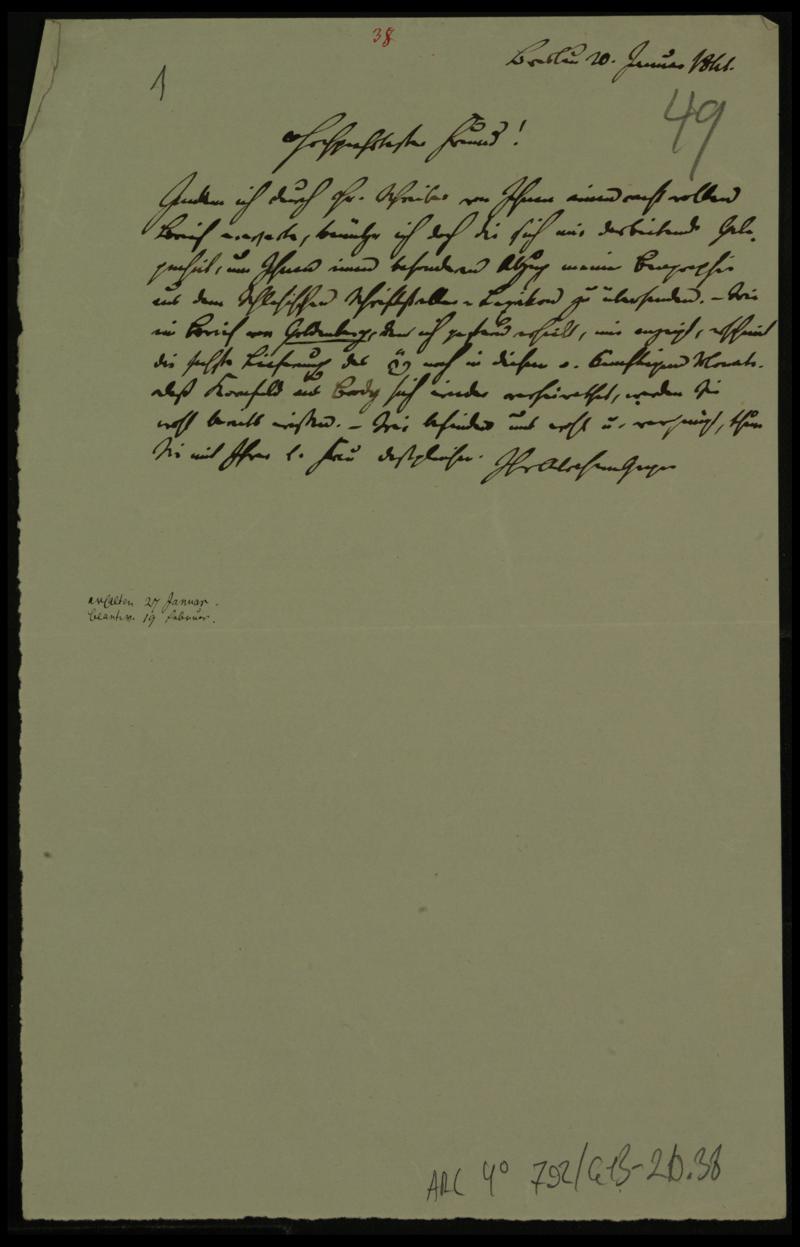 38
Breslau 20. Januar 1841.
1
49
Hochgeehrtester Freund!
Indem ich durch Hr. Schreiber von Ihnen einen recht vollen
Brief erwarte, benütze ich doch die sich mir darbietende Gele-
genheit, um Ihnen einen besonderen Abzug meiner Biographie
aus dem Schlesischen Schriftsteller-Lexikon zu übersenden. – Wie
ein Brief von Goldenberg, den ich gestern erhielt, mir anzeigt, erscheint
die sechste Lieferung des noch in diesem o. künftigen Monate.
daß Kornfeld aus Brody sich wieder verheirathet, werden Sie
wohl bereits wissen. – Wir befinden uns wohl u. vergnügt, thun
Sie mit Ihrer l. Frau desgleichen. Ihr Abraham Geiger
erhalten 27 Januar.
beantw. 19 Februar.
ARC 4° 792/G13-2/D.38